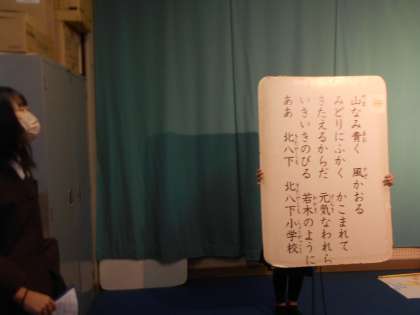 山なみ青く　風かおる
みどりにふかく　かこまれて
きたえるからだ　元気なわれら
いきいきのびる　若木のように
ああ　北八下　北八下小学校